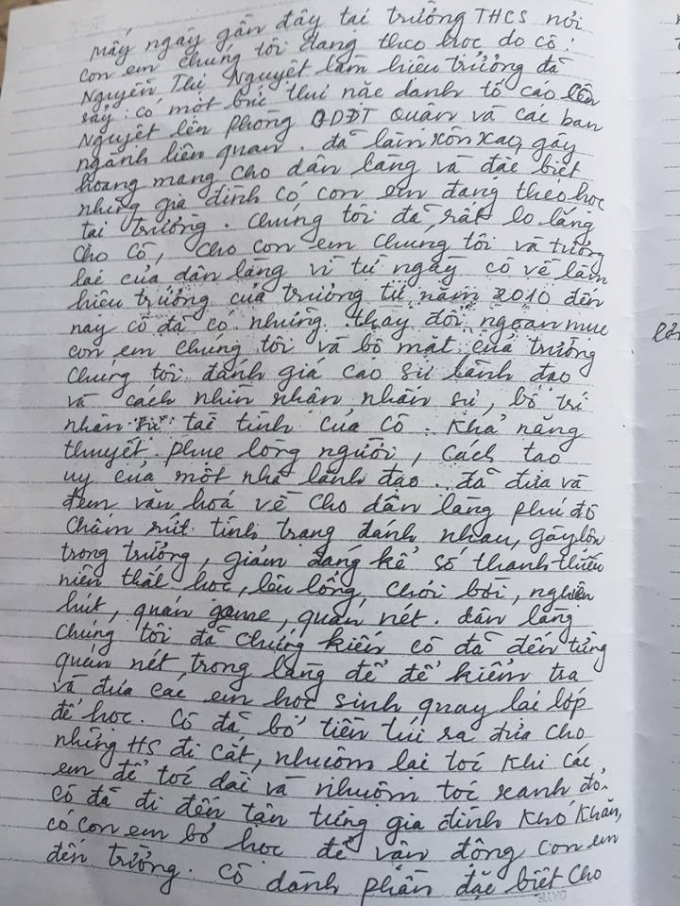 Mấy ngày gần đây tại trường THCS nơi
con em chúng tôi đang theo học do cô:
Nguyễn Thị Nguyệt làm hiệu trưởng đã
sảy: có một bức thư nặc danh tố cáo lên
Nguyệt lên phòng GDĐT Quận và các ban
ngành liên quan. đã làm xôn xao, gây
hoang mang cho dân làng và đặc biệt
những gia đình có con em đang theo học
tại trường. Chúng tôi đã rất lo lắng
cho cô, cho con em chúng tôi và tương
lai của dân làng vì từ ngày cô về làm
hiệu trưởng của trường từ năm 2010 đến
nay cô đã có những thay đổi ngoạn mục
con em chúng tôi và bộ mặt của trường
chúng tôi đánh giá cao sự lãnh đạo
và cách nhìn nhận nhân sự, bố trí
nhân sự tài tình của cô. Khả năng
thuyết phục lòng người, cách tạo
uy của một nhà lãnh đạo. đã đưa và
đem văn hoá về cho dân làng phú đô
chấm rứt tình trạng đánh nhau, gây lộn
trong trường, giảm đáng kể số thanh thiếu
niên thất học, lêu lổng, chơi bời, nghiện
hút, quán game, quán nét. dân làng
chúng tôi đã chứng kiến cô đã đến từng
quán nét trong làng để để kiểm tra
và đưa các em học sinh quay lại lớp
để học. Cô đã bỏ tiền túi ra đưa cho
những HS đi cắt, nhuộm lại tóc khi các
em để tóc dài và nhuộm tóc xanh đỏ.
cô đã đi đến tận từng gia đình khó khăn,
có con em bỏ học để vận động con em
đến trường. Cô dành phần đặc biệt cho